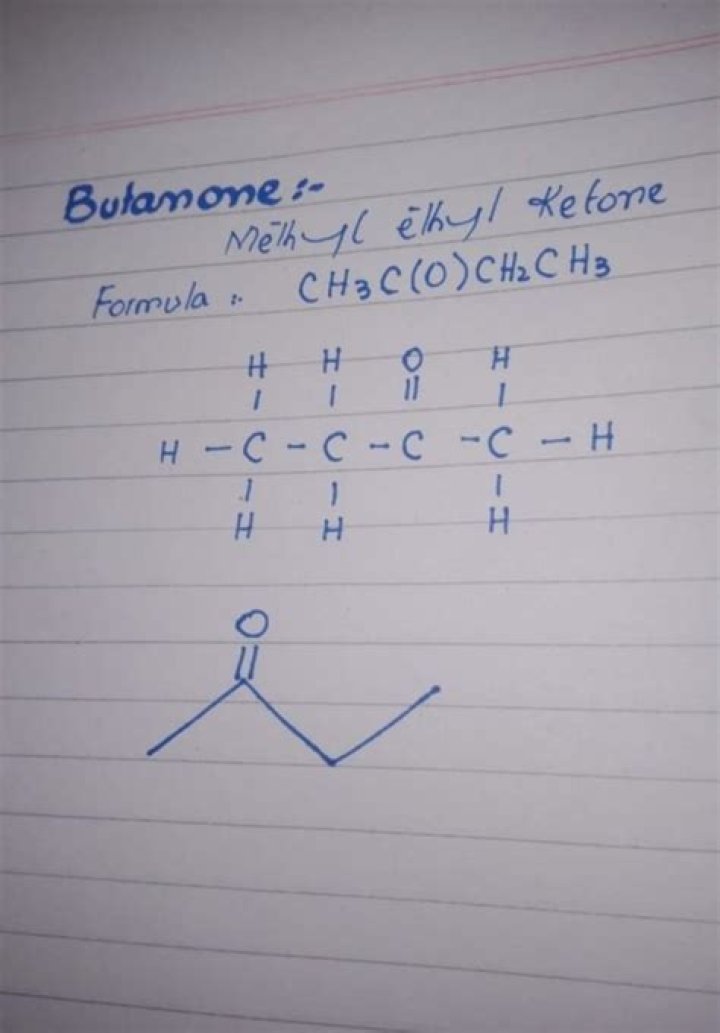 Butanone :-
Methyl ethyl Ketone
Formula :. CH3C(O)CH2CH3
H H O H
H - C - C - C - C - H
H H H
O